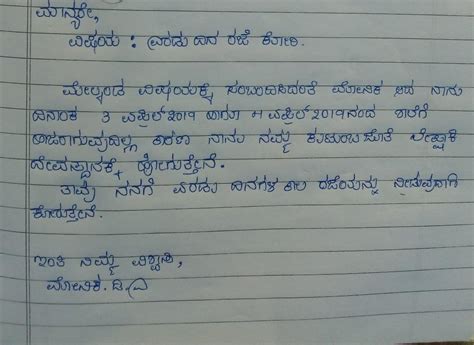 ಮಾನ್ಯರೇ,
ವಿಷಯ : ಎರಡು ದಿನ ರಜೆ ಕೋರಿ.
ಮೇಲ್ಕಂಡ ವಿಷಯಕ್ಕೆ ಸಂಬಂಧಿಸಿದಂತೆ ಮೋನಿಕ ಆದ ನಾನು
ದಿನಾಂಕ 3 ಏಪ್ರಿಲ್ 2019 ಹಾಗೂ 4 ಏಪ್ರಿಲ್ 2019ನಂದ ಶಾಲೆಗೆ
ಹಾಜರಾಗುವುದಿಲ್ಲ ಕಾರಣ ನಾನು ನಮ್ಮ ಕುಟುಂಬ ಜೊತೆ
ದೇವಸ್ಥಾನಕ್ಕೆ ಹೋಗುತ್ತೇನೆ.
ತಾವು ನನಗೆ ಎರಡು ದಿನಗಳ ಕಾಲ ರಜೆಯನ್ನು ನೀಡುವುದಾಗಿ
ಕೋರುತ್ತೇನೆ.
ಇಂತಿ ನಿಮ್ಮ ವಿಶ್ವಾಸಿ,
ಮೋನಿಕ. ಡಿ.